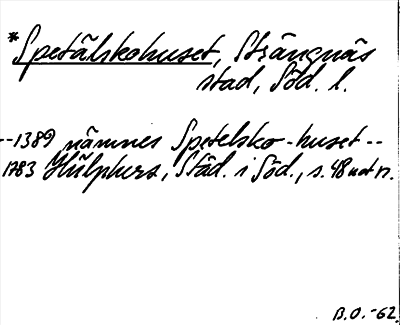 *Spetälskohuset, Strängnäs
stad, Söd. l.
--1389 nämnes Spetelsko-huset--
1783 Hülphers, Städ. i Söd., s. 48 not n.
B.O.-62.